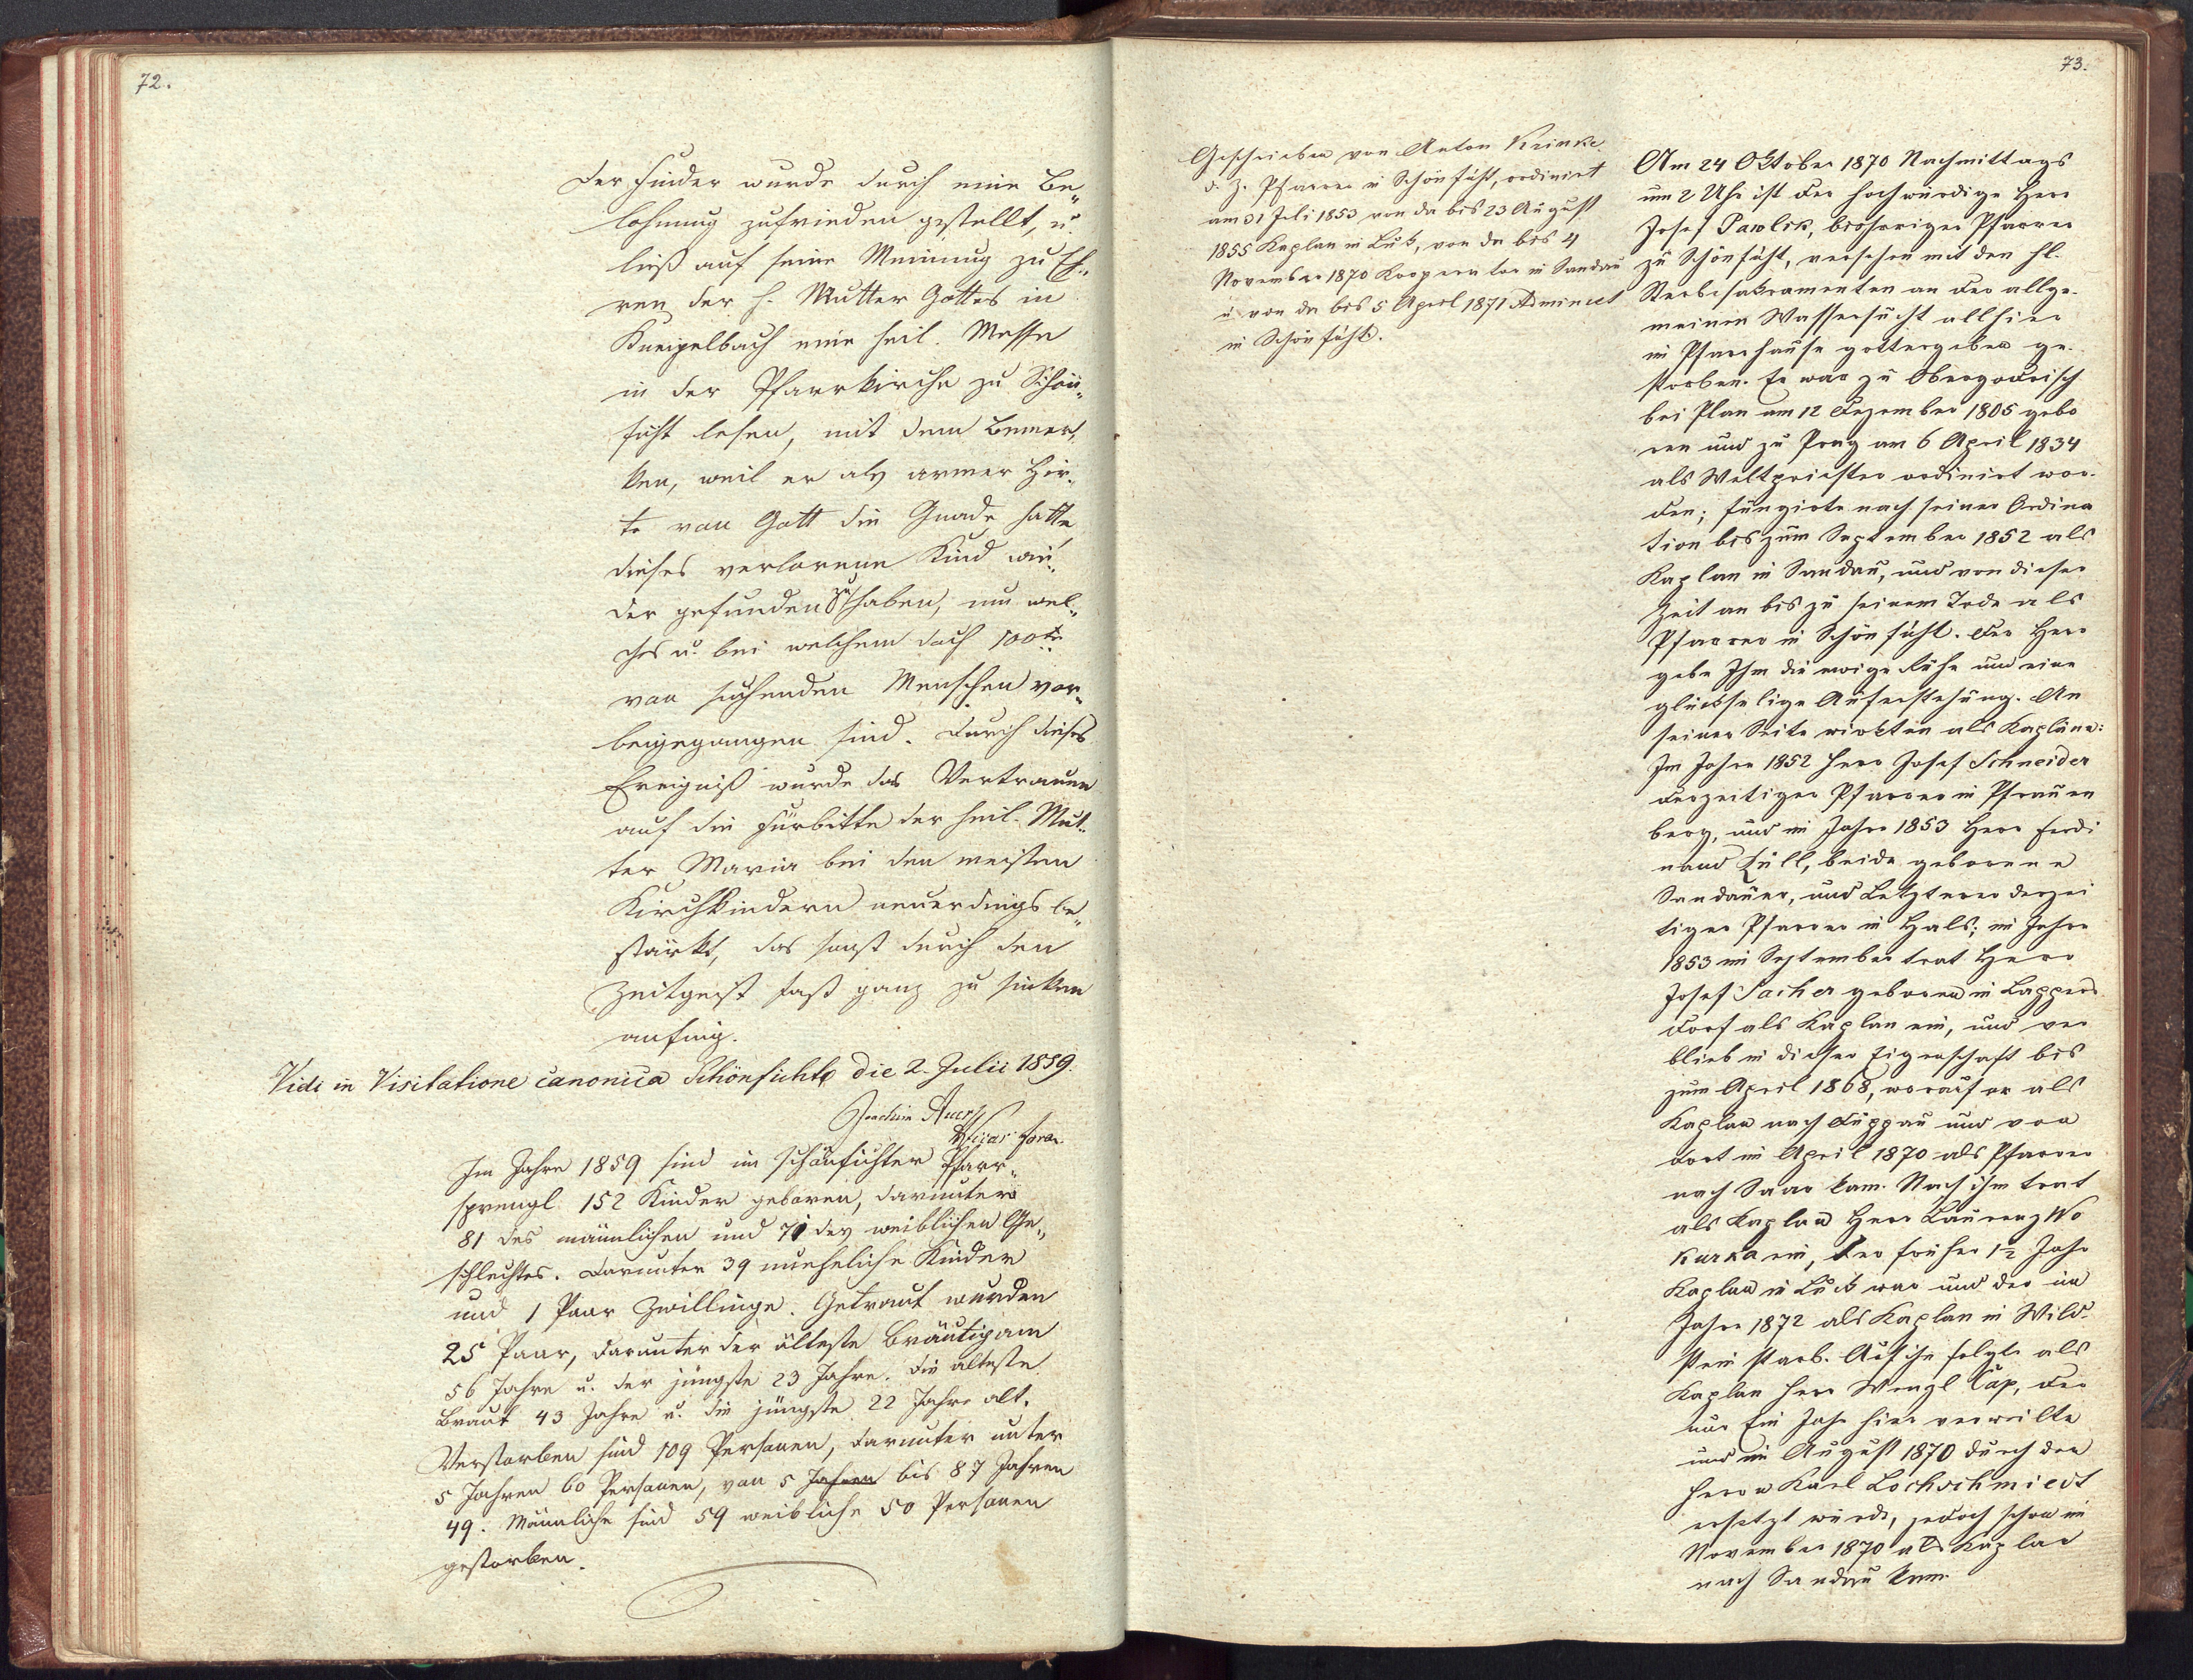 72.
Der Finder wurde durch eine Be„
lohnung zufrieden gestellt, u.
ließ auf seine Meinung zu Eh„
ren der h. Mutter Gottes in
Kneipelbach eine heil. Messe
in der Pfarrkirche zu Schön„
ficht lesen, mit dem Bemer„
ken, weil er als armer Hir„
te von Gott die Gnade hatte
dieses verlorene Kind wie„
der gefunden zu haben, um wel„
ches u. bei welchem doch 100te
von suchenden Menschen vor„
beigegangen sind. Durch dieses
Ereigniß wurde das Vertrauen
auf die Fürbitte der heil. Mut„
ter Maria bei den meisten
Kirchkindern neuerdings be„
stärkt, das sonst durch den
Zeitgeist fast ganz zu sinken
anfing.
Vidi in Visitatione canonica Schönficht die 2. Julii 1859.
Joachim
Vicar foran.
Im Jahre 1859 sind im schönfichter Pfarr„
sprengl 152 Kinder geboren, darunter
81 des männlichen und 71 des weiblichen Ge„
schlechtes. Darunter 39 uneheliche Kinder
und 1 Paar Zwillinge. Getraut wurden
25 Paar, darunter der älteste Bräutigam
56 Jahre u. der jüngste 23 Jahre. die älteste
Braut 43 Jahre u. die jüngste 22 Jahre alt.
Verstorben sind 109 Personen, darunter unter
5 Jahren 60 Personen, von 5 Jahren bis 87 Jahren
49. Männliche sind 59 weibliche 50 Personen
gestorben.
73.
Geschrieben von Anton Krinke
d. Z. Pfarrer in Schönficht, ordinirt
am 31 Juli 1853 von da bis 23 August
1855 Kaplan in Luk, von da bis 4
November 1870 Kooperator in Sandau
u von da bis 5 April 1871 Administ
in Schönficht.
Am 24 Oktober 1870 Nachmittags
um 2 Uhr ist der hochwürdige Herr
Josef Pawlik, bisheriger Pfarrer
zu Schönficht, versehen mit den hl.
Sterbsakramenten an der allge-
meinen Wassersucht allhier
im Pfarrhause gottergeben ge-
storben. Er war zu Obergodrisch
bei Plan am 12 Dezember 1805 gebo
ren und zu Prag am 6 April 1834
als Weltpriester ordinirt wor-
den; fungirte nach seiner Ordina
tion bis zum September 1852 als
Kaplan in Sandau, und von dieser
Zeit an bis zu seinem Tode als
Pfarrer in Schönficht. Der Herr
gebe Ihm die ewige Ruhe und eine
glückselige Auferstehung. An
seiner Seite wirkten als Kapläne:
Im Jahre 1852 Herr Josef Schneider
derzeitiger Pfarrer in Pfrauen
berg, und im Jahre 1853 Herr Ferdi
nand Füll, beide geborene
Sandauer, und Letzterer derzei
tiger Pfarrer in Hals; im Jahre
1853 im September trat Herr
Josef Sacher geboren in Lappers
dorf als Kaplan ein, und ver
blieb in dieser Eigenschaft bis
zum April 1868, worauf er als
Kaplan nach Duppau und von
dort im April 1870 als Pfarrer
nach Saar kam. Nach ihm trat
als Kaplan Herr Laurenz Wo
kurka ein, der früher 1½ Jahr
Kaplan in Luck war und der im
Jahre 1872 als Kaplan in Wild-
stein starb. Auf ihn folgte als
Kaplan Herr Wenzl Čap, der
nur Ein Jahr hier verweilte
und im August 1870 durch den
Herrn Karl Lochschmiedt
ersetzt wurde, jedoch schon im
November 1870 als Kaplan
nach Sandau kam.